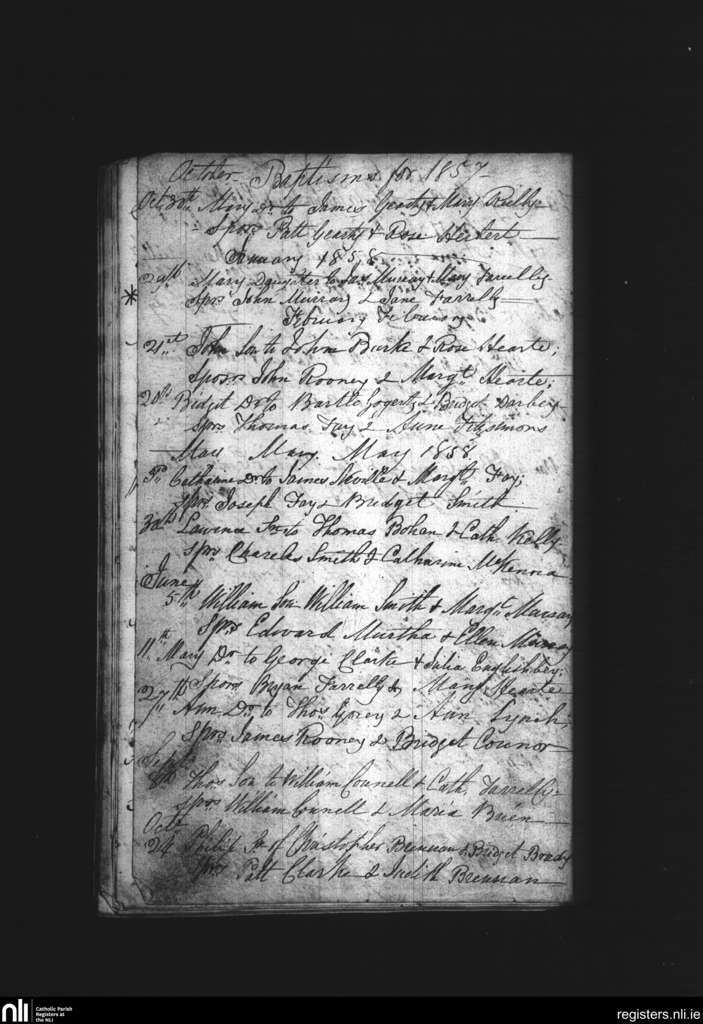 October Baptisms for 1857
Oct 30th Mary Dr. to James Gearty & Mary Reilly
Spors Patt Gearty & Rose Herbert
January 1858
20th Mary Daughter to Jas. Murray & Mary Farrelly
Spors John Murray & Jane Farrelly
February
21st John Son to John Burke & Rose Hearte;
Sposrs John Rooney & Margt. Hearte;
28th Bidget Dr. to Bartle Gogerty & Bridget Darbey
Spors Thomas Fay & Anne Fitzsimons
May May. May 1858
3d Catharine Dr. to James Neville & Margt. Fay;
Spors Joseph Fay & Bridget Smith
Lawrence Sn to Thomas Bohan & Cath. Kelly
Spors Charels Smith & Catharine McKenna
June
5th William Son William Smith & Margt. Murray
Spors Edward Murtha & Ellen Murray
11th Mary Dr. to George Clarke & Julia Englishbey;
Spors Bryan Farrelly & Mary Hearte
27th Ann Dr. to Thos. Gorey & Ann Lynch
Spors James Rooney & Bridget Connor
Sept
Thos Son to William Connell & Cath. Farrelly
Spors William Connell & Maria
Octr
24 Philip Sn of Christopher Brennan & Bridget Brady
Spors Patt Clarke & Judith Brennan
nli
Catholic Parish
Registers at
the NLI
registers.nli.ie